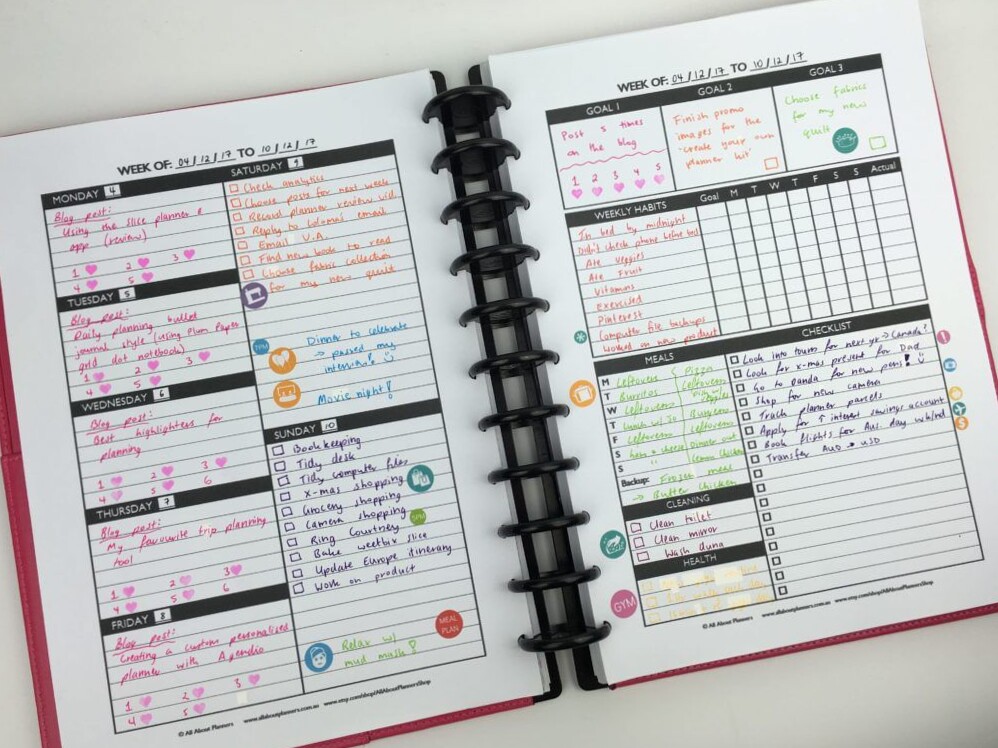 WEEK OF: 04/12/17 TO 10/12/17
MONDAY 4
Blog post:
Using the slice planner &
app (review)
1 2 3
4 5
TUESDAY 5
Blog post:
Daily planning bullet
journal style (using Plum Paper
grid dot notebook)
1 2 3
4 5
WEDNESDAY 6
Blog post:
Best highlighters for
planning
1 2 3
4 5 6
THURSDAY 7
Blog post:
My favourite trip planning
tool
1 2 3
4 5 6
FRIDAY 8
Blog post:
Creating a custom personalised
planner with Agendio
1 2 3
4 5
SATURDAY 9
Check analytics
Choose posts for next week
Record planner review vid.
Reply to Lorena's email
Email V.A.
Find new book to read
Choose fabric collection
for my new quilt
7PM
Dinner to celebrate
→ passed my
interview!
Movie night!
SUNDAY 10
Bookkeeping
Tidy desk
Tidy computer files
X-mas shopping
Grocery shopping
Camera shopping
Ring Courtney
5PM
Bake weetbix slice
Update Europe itinerary
Work on product
MEAL
PLAN
Relax w/
mud mask!
© All About Planners www.allaboutplanners.com.au www.etsy.com/shop/AllAboutPlannersShop
WEEK OF: 04/12/17 TO 10/12/17
GOAL 1
Post 5 times
on the blog
1 2 3 4 5
GOAL 2
Finish promo
images for the
'create your own
planner kit'
GOAL 3
Choose fabrics
for my new
quilt
WEEKLY HABITS Goal M T W T F S S Actual
In bed by midnight
Didn't check phone before bed
Ate veggies
Ate Fruit
Vitamins
Exercised
Pinterest
Computer file backups
Worked on new product
MEALS
M Leftovers Pizza
T Burritos Leftovers
W Leftovers
T Lunch w/ Burgers
F Leftovers Leftovers
S & cheese Dinner out
S " Lemon chicken
Backup: Frozen meal
→ Butter Chicken
CLEANING
Clean toilet
Clean mirror
Wash
HEALTH
GYM
CHECKLIST
Look into tours for next yr → Canada?
Look for x-mas present for Dad
Go to Daiso for new pens!
Shop for new camera
Track planner parcels
Apply for ↑ interest savings account
Book flights for Aus. day w/end
Transfer AUD → USD
© All About Planners www.allaboutplanners.com.au www.etsy.com/shop/AllAboutPlannersShop